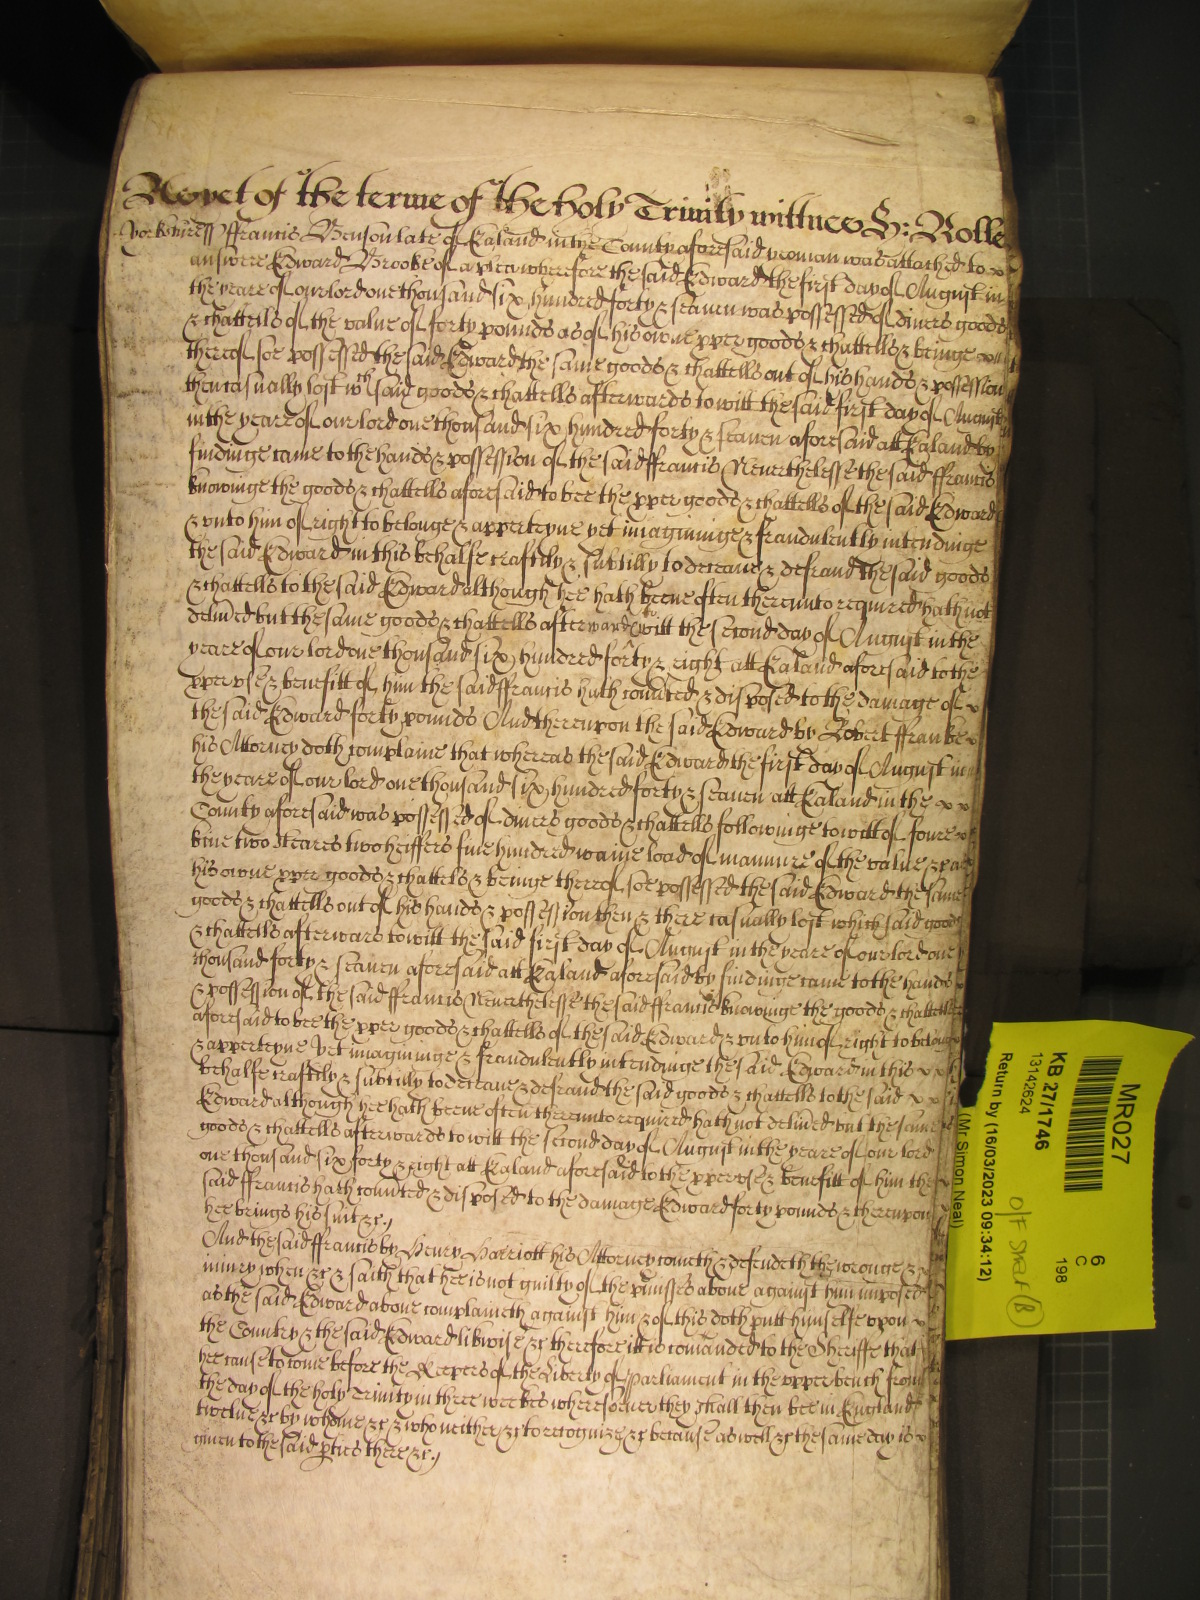 Novel of the terme of the holy Trinity wittnes H: Rolle
Yorkshire ss ffrancis Benson late of Ealand in the County aforesaid yeoman was attached to
answere Edward Brooke of a plea wherefore the said Edward the first day of August in
the yeare of our lord one thousand six hundred forty & seaven was possessed of divers goods
& chattells of the value of forty pounds as of his owne pper goods & chattells & beinge
thereof soe possessed the said Edward the same goods & chattells out of his hands & possession
then casually lost wch said goods & chattells afterwards to witt the said first day of August
in the yeare of our lord one thousand six hundred forty & seaven aforesaid att Ealand by
findinge came to the hands & possession of the said ffrancis Neverthelesse the said ffrancis
knowinge the goods & chattells aforesaid to bee the pper goods & chattells of the said Edward
& unto him of right to belonge & apperteyne yet imagininge & fraudulently intendinge
the said Edward in this behalfe craftily & subtilly to deceave & defraud the said goods
& chattells to the said Edward although hee hath beene often thereunto required hath not
delived but the same goods & chattells afterwards to witt the second day of August in the
yeare of our lord one thousand six hundred forty & eight att Ealand aforesaid to the
pper use & benefitt of him the said ffrancis hath convted & disposed to the damage of
the said Edward forty pounds And thereupon the said Edward by Robert ffranke
his Attorney doth complaine that whereas the said Edward the first day of August in
the yeare of our lord one thousand six hundred forty & seaven att Ealand in the
County aforesaid was possessed of divers goods & chattells followinge to witt of foure
kine two steares two heiffers five hundred waine load of mannure of the value &c as of
his owne pper goods & chattels & beinge thereof soe possessed the said Edward the same
goods & chattells out of his hands & possession then & there casually lost which said goods
& chattells afterwars to witt the said first day of August in the yeare of our lord one
thousand forty & seaven aforesaid att Ealand aforesaid by findinge came to the hands
& possession of the said ffrancis Neverthelesse the said ffrancis knowinge the goods & chattells
aforesaid to bee the pper goods & chattells of the said Edward & unto him of right to belonge
& apperteyne Yet imagininge & fraudulently intendinge the said Edward in this
behalfe craftily & subtilly to deceave & defraud the said goods & chattells to the said
Edward although hee hath beene often thereunto required hath not delived but the same
goods & chattells afterwards to witt the second day of August in the yeare of our lord
one thousand six forty & eight att Ealand aforesaid to the pper use & benefitt of him the
said ffrancis hath convted & disposed to the damage Edward forty pounds & thereupon
hee brings his suit &c
And the said ffrancis by Henry Harriott his Attorney cometh & defendeth the wronge &
iniury when &c & saith that hee is not guilty of the pmisses above against him imposed
as the said Edward above complaineth against him & of this doth putt himselfe upon
the Country & the said Edward likwise &c therefore itt is comanded to the Sheriffe that
hee cause to come before the Keepers of the Liberty of Parliament in the upper bench from
the day of the holy Trinity in three weekes wheresoever they shall then bee in England
twelve &c by whome &c & who neither &c to recognize &c because as well &c the same day is
given to the said pties there &c
MR027
6
C
198
KB 27/1746
13142624
O/F Shelf (B)
Return by (16/03/2023 09:34:12)
(Mr Simon Neal)